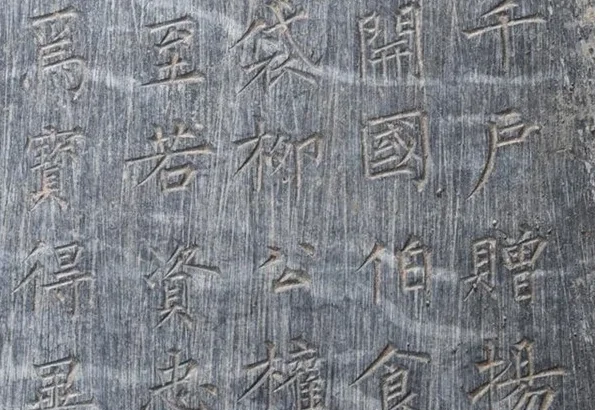 千户贈揚
開國伯食
袋柳公權
至若資忠
爲寶得